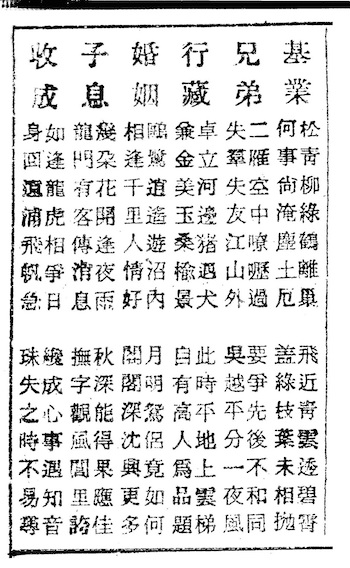 基業
松青柳綠鶴離巢
飛近青雲透碧霄
何事尚淹塵土厄
蓋綠枝葉未相拋
兄弟
二雁空中嘹嚦過
要爭先後不和同
失羣失友江山外
吳越平分一夜風
行藏
卓立河邊猪遇犬
此時平地上雲梯
兼金美玉桑榆景
自有高人為品題
婚姻
鷺逍遙遊沼內
月明鴛侶竟如何
相逢千里人情好
開閣深沈興更多
子息
幾朵花開逢夜雨
秋深能得果應佳
龍門有客傳消息
撫字觀風閭里誇
收成
如逢龍虎相爭日
纔成心事遇知音
身回遠浦飛帆急
珠失之時不易尋